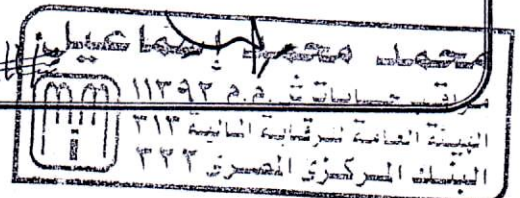 محمد محمد إسماعيل
مراقب حسابات ش.م.م ١١٣٩٢
الهيئة العامة للرقابة المالية ٣١٣
البنك المركزي المصري ٣٢٢